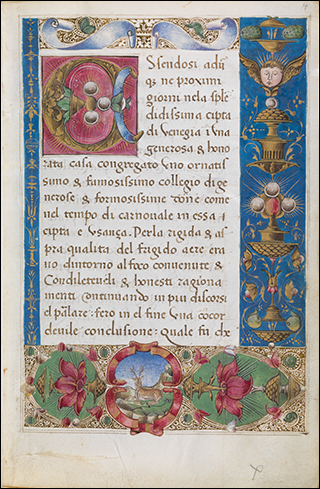 E Ssendosi adũ
qȝ ne proximi
giorni nela sple
didissima cipta
di Venegia i una
generosa & hono
rata casa congregato uno ornatis
simo & famosissimo collegio di ge
nerose & formosissime done come
nel tempo di carnouale in essa i
cipta e usanza. Perla rigida & as
pra qualita del frigido aere era
no dintorno al foco conuenute, &
Con dilecteuoli & honesti ragiona
menti continuando in piu discorsi
el parlare: fero in el fine una cōcor
deuile conclusione: quale fu che